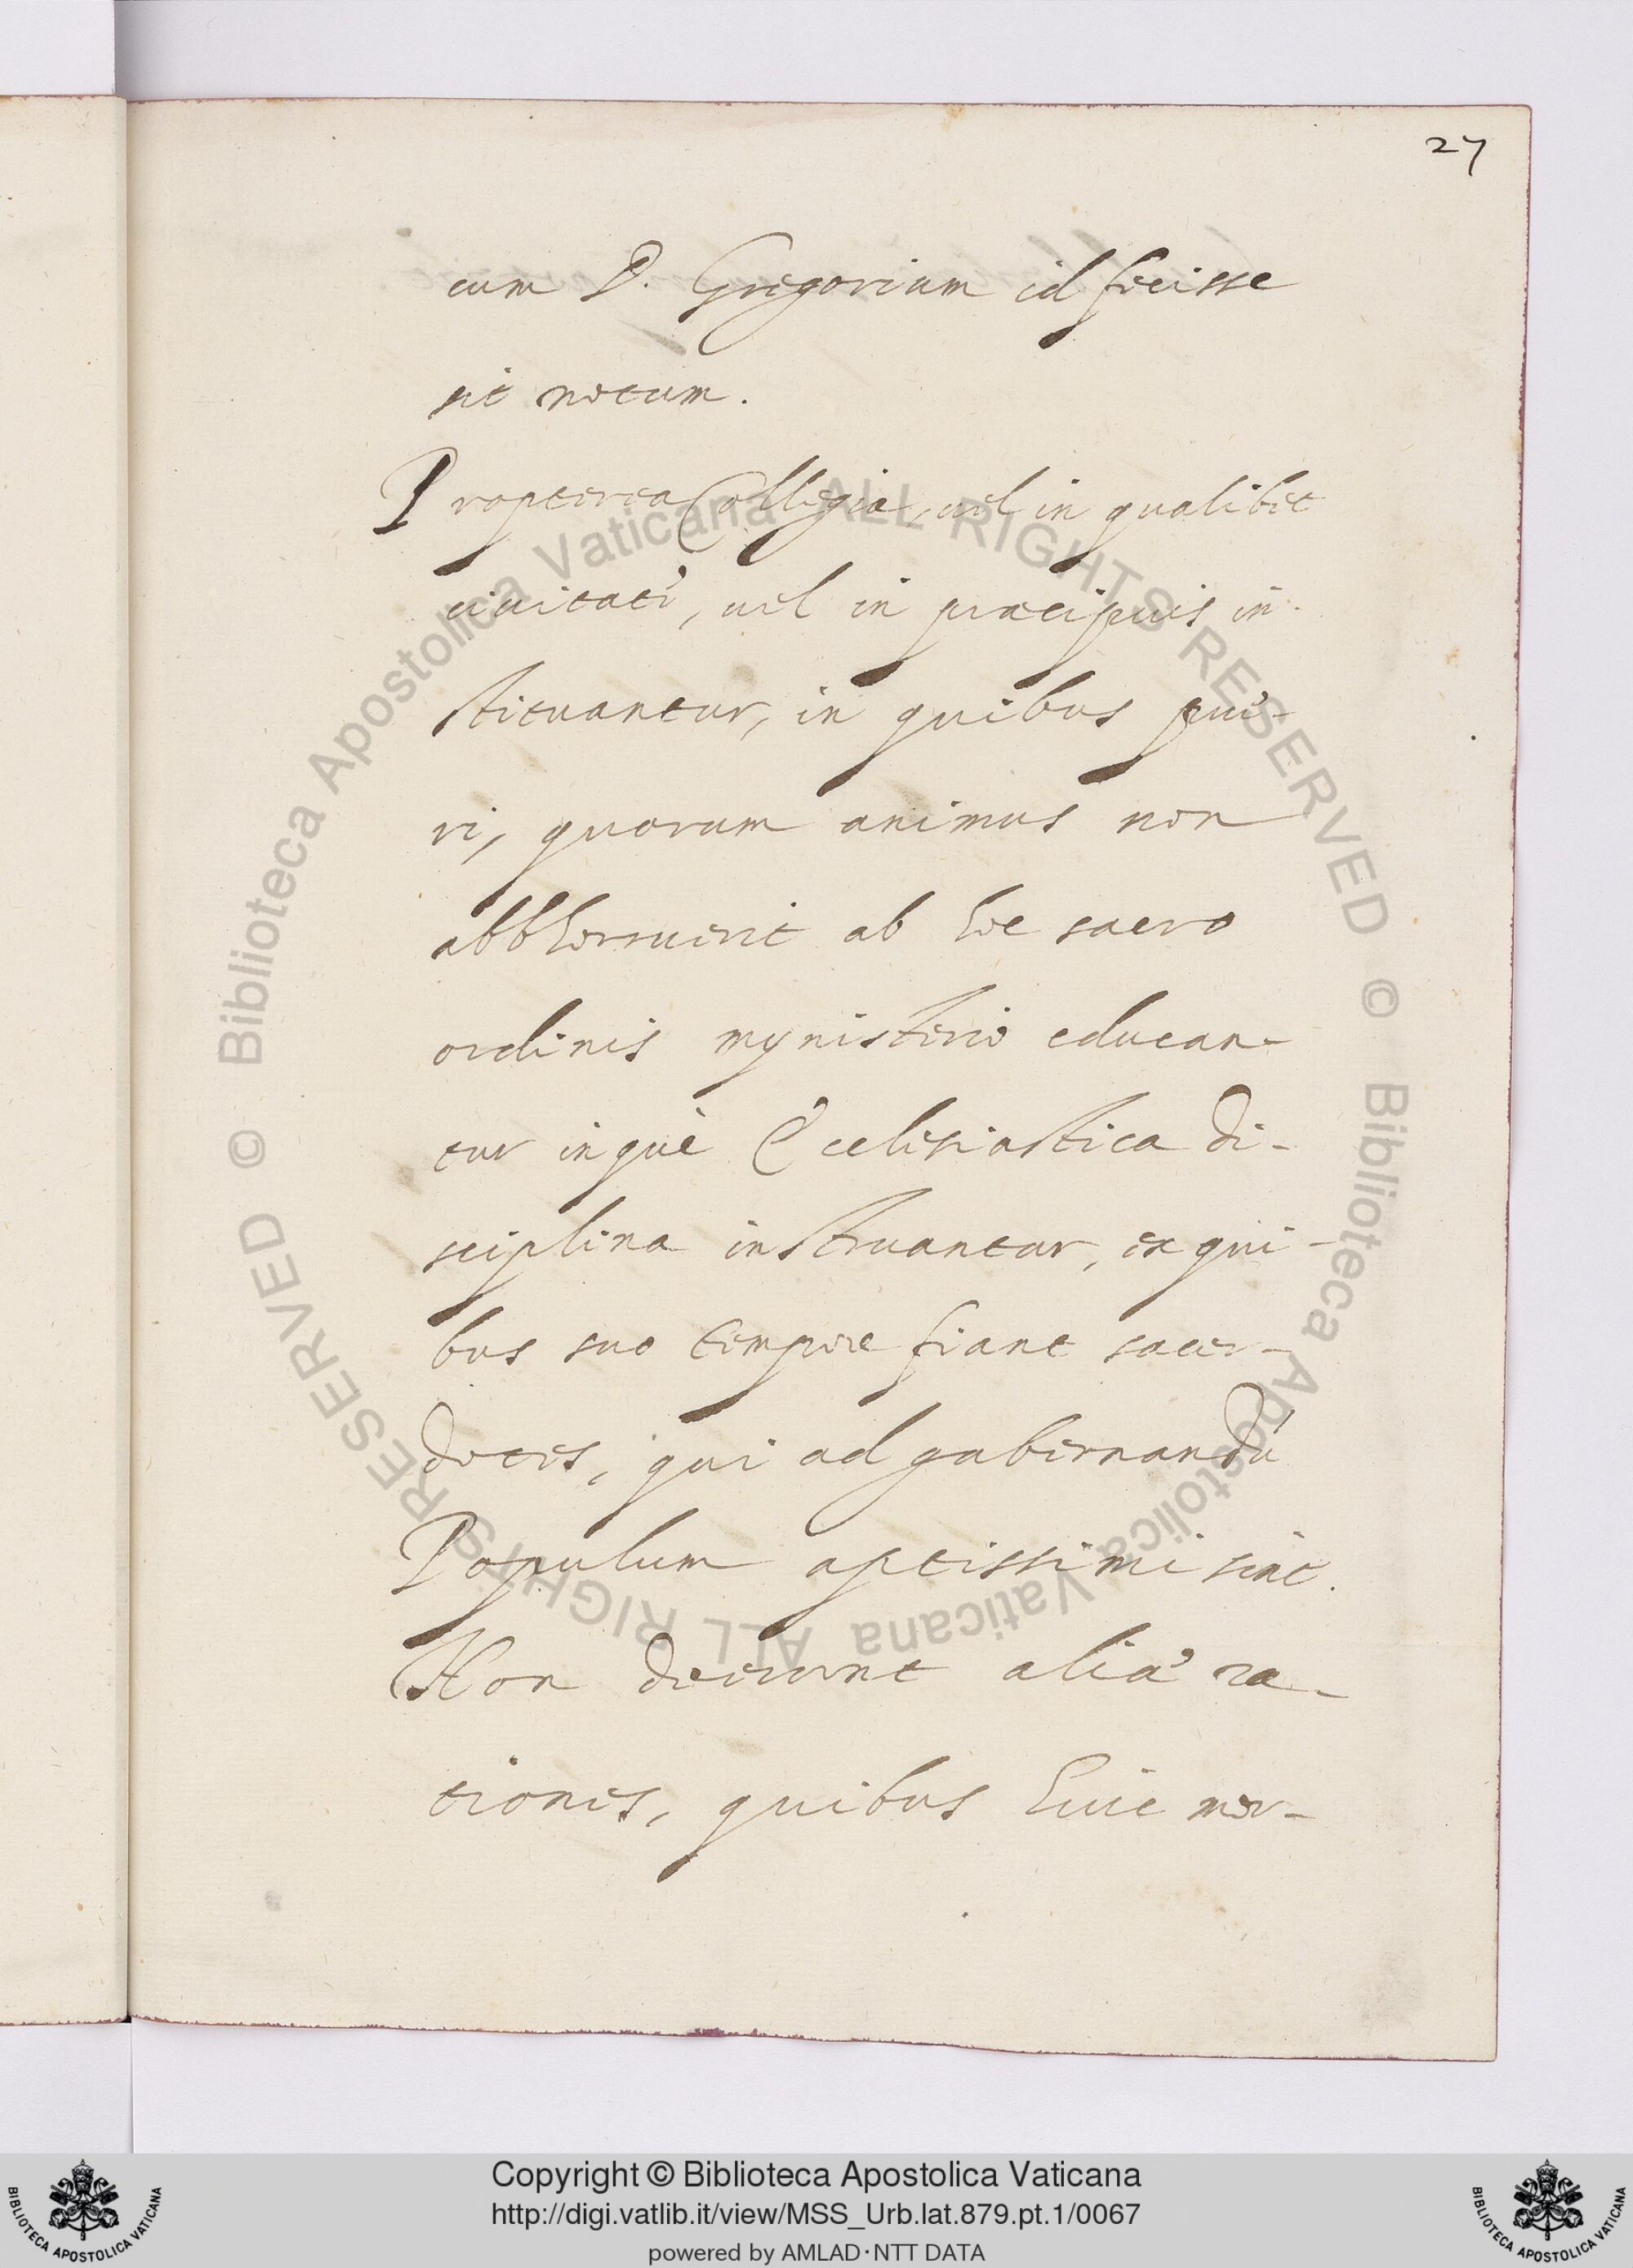 27
cum D. Gregorium id fecisse
sit notum.
Propterea Collegia, uel in qualibet
ciuitate, uel in praecipuis in-
stituantur, in quibus pue-
ri, quorum animus non
abbhorruerit ab hoc sacro
ordinis mynisterio educan-
tur inquè Ecclesiastica di-
sciplina instruantur, ex qui-
bus suo tempore fiant sacer-
dotes, qui ad gubernandū
Populum aptissimi sint.
Non deerunt aliae ra-
tiones, quibus huic mor-
© Biblioteca Apostolica Vaticana ALL RIGHTS RESERVED © Biblioteca Apostolica Vaticana ALL RIGHTS RESERVED
Copyright © Biblioteca Apostolica Vaticana
http://digi.vatlib.it/view/MSS_Urb.lat.879.pt.1/0067
powered by AMLAD·NTT DATA
BIBLIOTECA APOSTOLICA VATICANA
BIBLIOTECA APOSTOLICA VATICANA